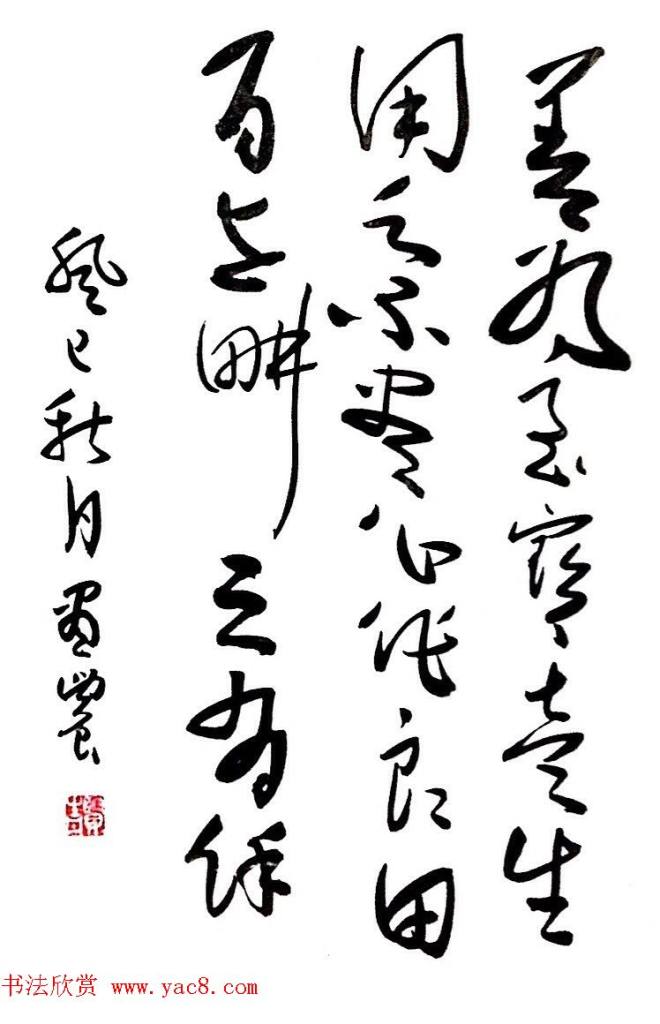 善為至寶壹生
用之不盡心作良田
百世畊之有餘
癸巳秋月農
书法欣赏 www.yac8.com